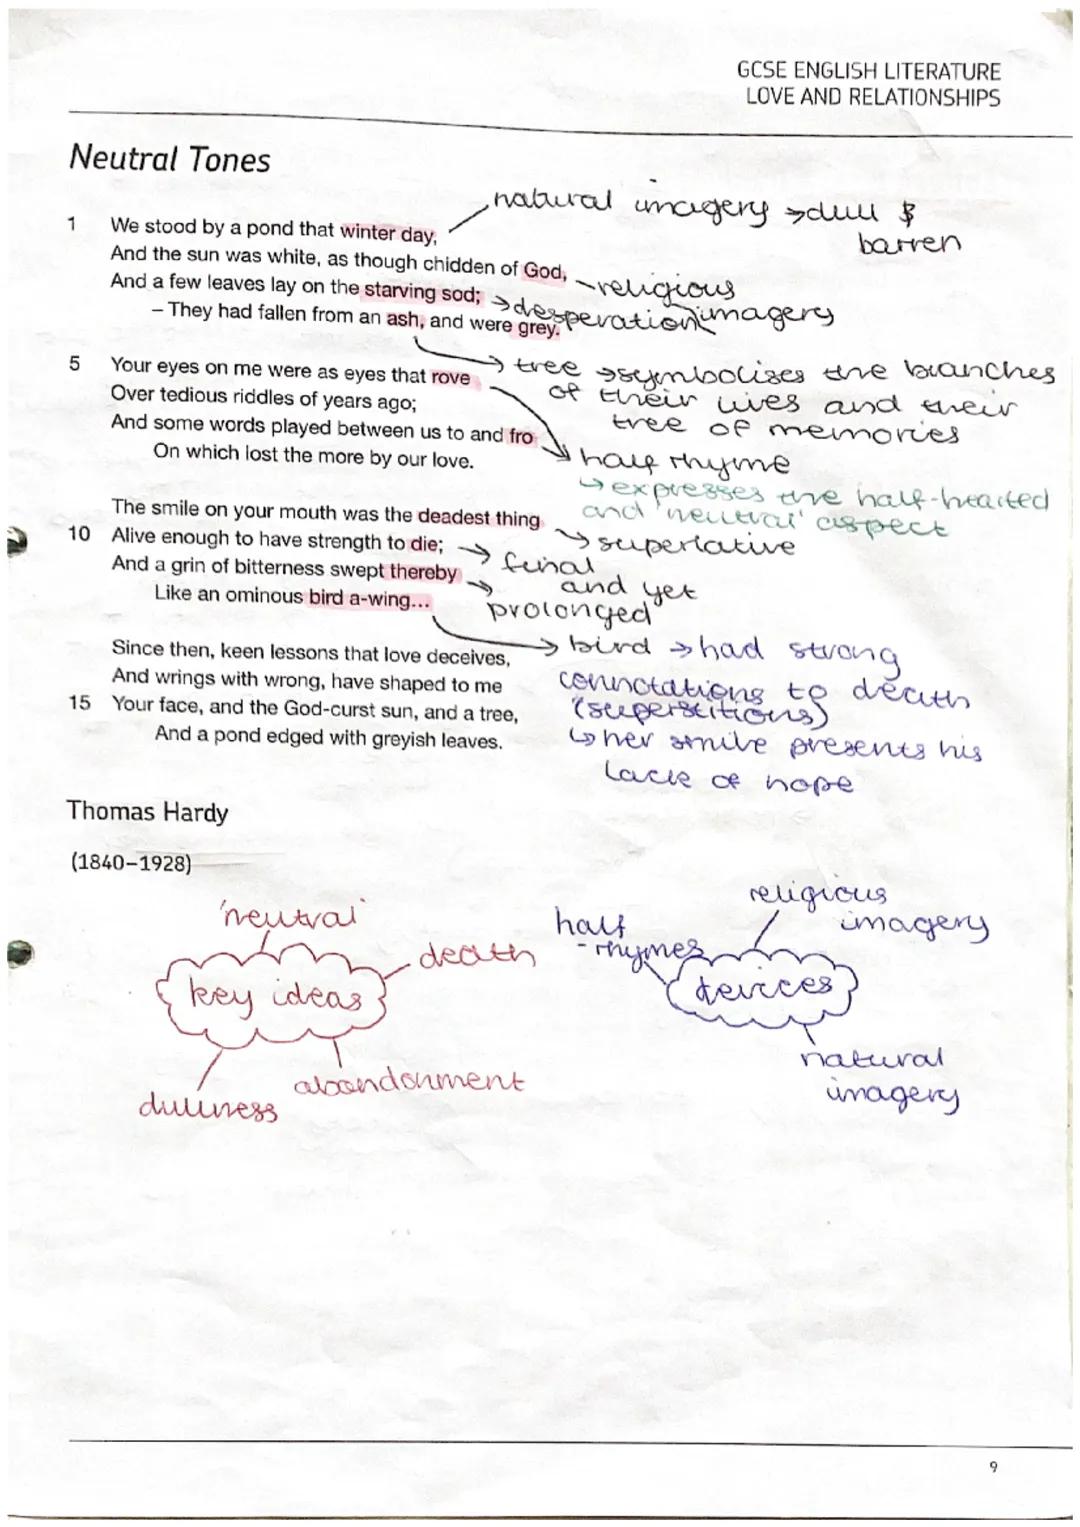 GCSE ENGLISH LITERATURE
LOVE AND RELATIONSHIPS
Neutral Tones
natural imagery → dull &
barren
1 We stood by a pond that winter day,
And the sun was white, as though chidden of God,
- religious
imagery
And a few leaves lay on the starving sod;
→ desperation
– They had fallen from an ash, and were grey.
→ tree → symbolises the branches
of their lives and their
tree of memories
5 Your eyes on me were as eyes that rove
Over tedious riddles of years ago;
And some words played between us to and fro
On which lost the more by our love.
half rhyme
↳ expresses the half-hearted
and 'neutral' aspect
The smile on your mouth was the deadest thing
→ superlative
10 Alive enough to have strength to die;
→ final
and yet
And a grin of bitterness swept thereby
→ prolonged
Like an ominous bird a-wing...
→ bird → had strong
connotations to death
(superstitions)
↳ her smile presents his
lack of hope
Since then, keen lessons that love deceives,
And wrings with wrong, have shaped to me
15 Your face, and the God-curst sun, and a tree,
And a pond edged with greyish leaves.
Thomas Hardy
(1840–1928)
'neutral'
death
key ideas
dullness
abandonment
religious
imagery
half
-rhymes
devices
natural
imagery
9